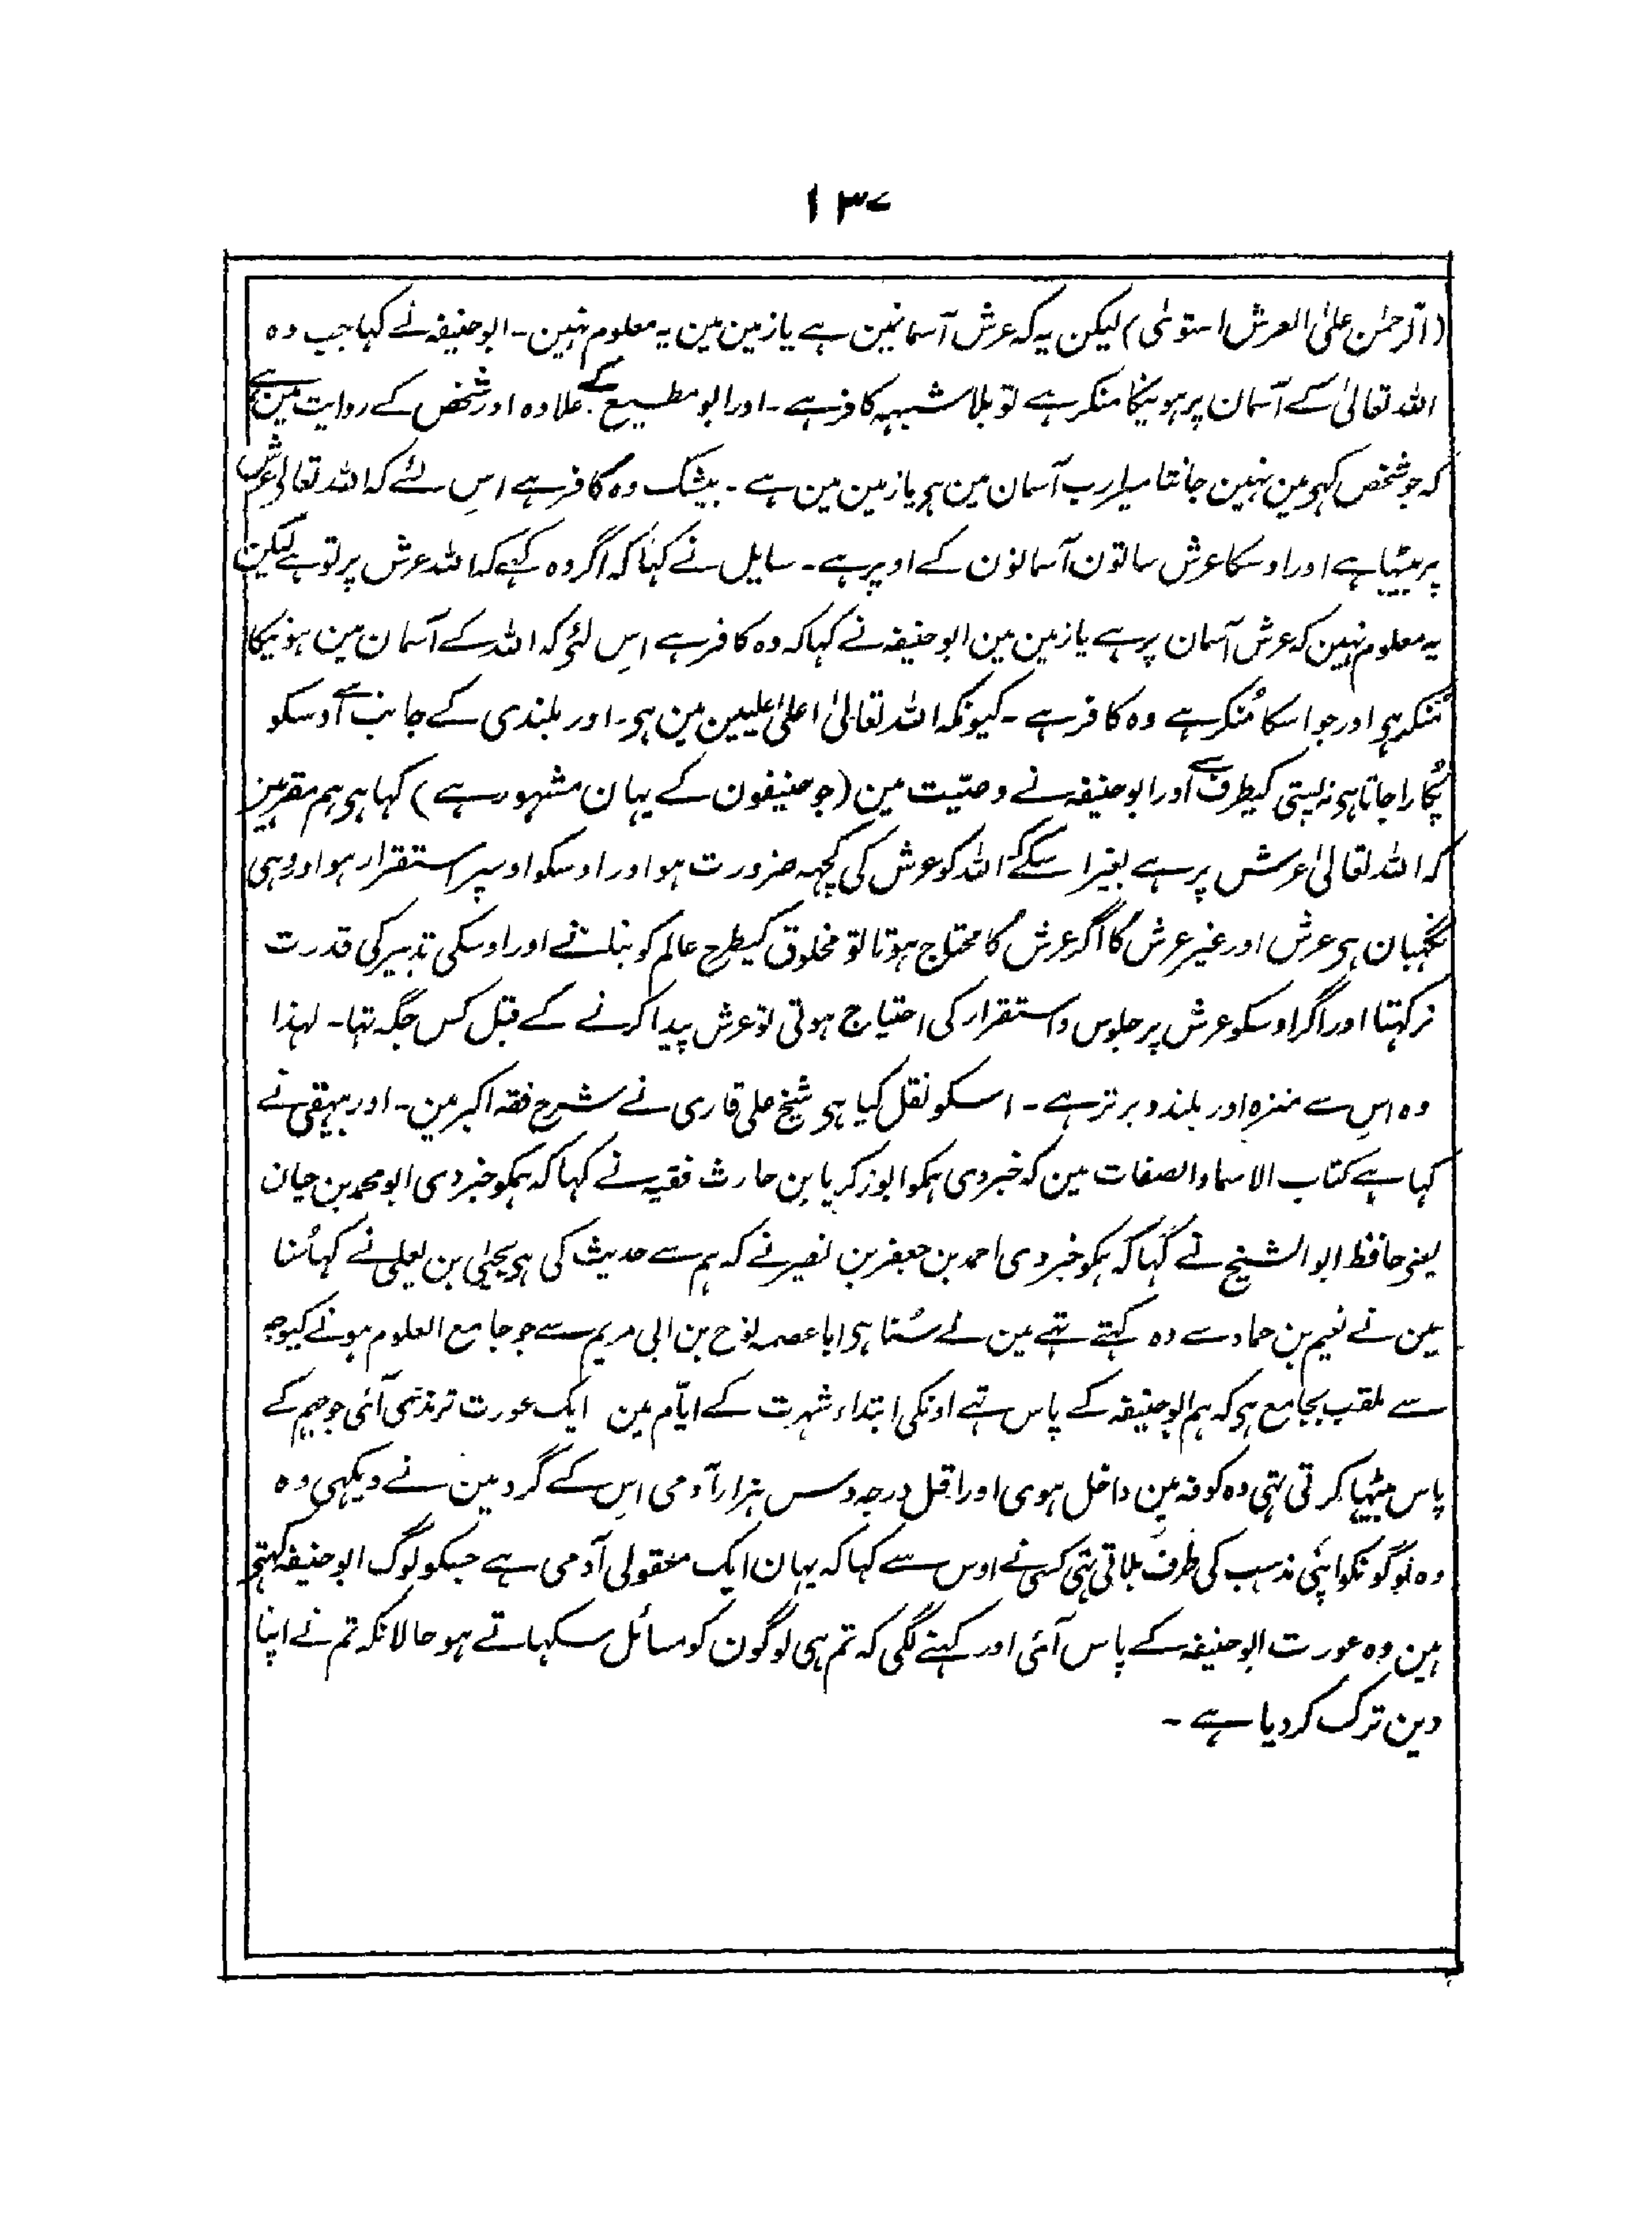 ۱۳۷
(الرحمٰن علیٰ العرش استویٰ) لیکن یہ کہ عرش آسمانمین ہے یا زمین مین یہ معلوم نہین۔ ابو حنیفہ نے کہا جب وہ
اللہ تعالیٰ کے آسمان پر ہونیکا منکر ہے تو بلا شبہہ کافر ہے۔ اور ابو مطیع کے علاوہ اور شخص کے روایت مین ہے
کہ جو شخص کہو مین نہین جانتا میرا رب آسمان مین ہی یا زمین مین ہے۔ بیشک وہ کافر ہے اسِ لئے کہ اللہ تعالیٰ عرش
پر بیٹہا ہے اور اوسکا عرش ساتون آسمانون کے اوپر ہے۔ سایل نے کہا کہ اگر وہ کہے کہ اللہ عرش پر تو ہے لیکن
یہ معلوم نہین کہ عرش آسمان پر ہے یا زمین مین ابو حنیفہ نے کہا کہ وہ کافر ہے اسِ لئے کہ اللہ کے آسمان مین ہونیکا
مُنکر ہی اور جو اسکا مُنکر ہے وہ کافر ہے۔ کیونکہ اللہ تعالیٰ اعلیٰ علیین مین ہی۔ اور بلندی کے جانب سے اوسکو
پُکارا جاتا ہی نہ پستی کیطرف سے اور ابو حنیفہ نے وصیّت مین (جو حنیفون کے یہان مشہور ہے) کہا ہی ہم مقر ہین
کہ اللہ تعالیٰ عرش پر ہے بغیر اسکے کہ اللہ کو عرش کی کچہہ ضرورت ہو اور اوسکو اوسپر استقرار ہو اور وہی
نگہبان ہی عرش اور غیر عرش کا اگر عرش کا محتاج ہوتا تو مخلوق کیطرح عالم کو بنانے اور اوسکی تدبیر کی قدرت
نرکہتا اور اگر اوسکو عرش پر جلوس و استقرار کی احتیاج ہوتی تو عرش پیدا کرنے کے قبل کس جگہ تہا۔ لہذا
وہ اسِ سے منزہ اور بلند و برتر ہے۔ اسکو نقل کیا ہی شیخ علی قاری نے شرح فقہ اکبر مین۔ اور بیہقی نے
کہا ہے کتاب الاسما والصفات مین کہ خبر دی ہمکو ابو زکریا بن حارث فقیہ نے کہا کہ ہمکو خبر دی ابو محمد بن حیان
یعنی حافظ ابو الشیخ نے کہا کہ ہمکو خبر دی احمد بن جعفر بن نصیر نے کہ ہم سے حدیث کی ہی یحییٰ بن یعلی نے کہا سُنا
مین نے نعیم بن حماد سے وہ کہتے تہے مین نے سُنا ہی ابا عصمہ نوح بن ابی مریم سے جو جامع العلوم ہونے کیوجہ
سے ملقب بجامع ہی کہ ہم ابو حنیفہ کے پاس تہے اونکی ابتداء شہرت کے ایّام مین ایک عورت ترمذسی آئی جو جہم کے
پاس بیٹہا کرتی تہی وہ کوفہ مین داخل ہوی اور اقل درجہ دس ہزار آدمی اسِ کے گرد مین نے دیکہی وہ
وہ لوگونکو اپنی مذہب کی طرف بلاتی تہی کسی نے اوس سے کہا کہ یہان ایک معقولی آدمی ہے جسکو لوگ ابو حنیفہ کہتے
ہین وہ عورت ابو حنیفہ کے پاس آئی اور کہنے لگی کہ تم ہی لوگون کو مسائل سکہاتے ہو حالانکہ تم نے اپنا
دین ترک کر دیا ہے۔